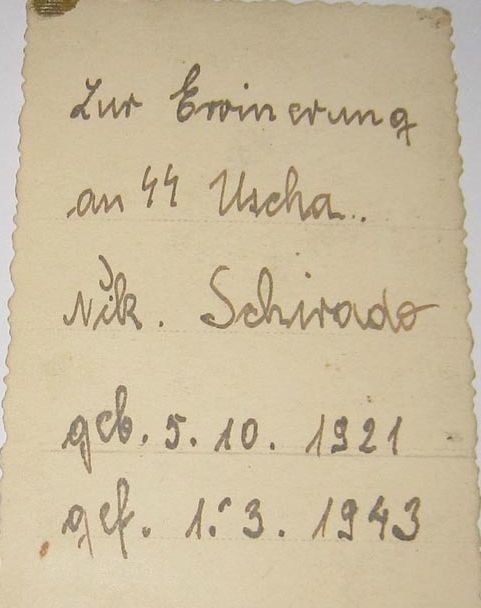 Zur Erinerung
an SS Uscha.
Nik. Schirado
geb. 5. 10. 1921
gef. 1. 3. 1943